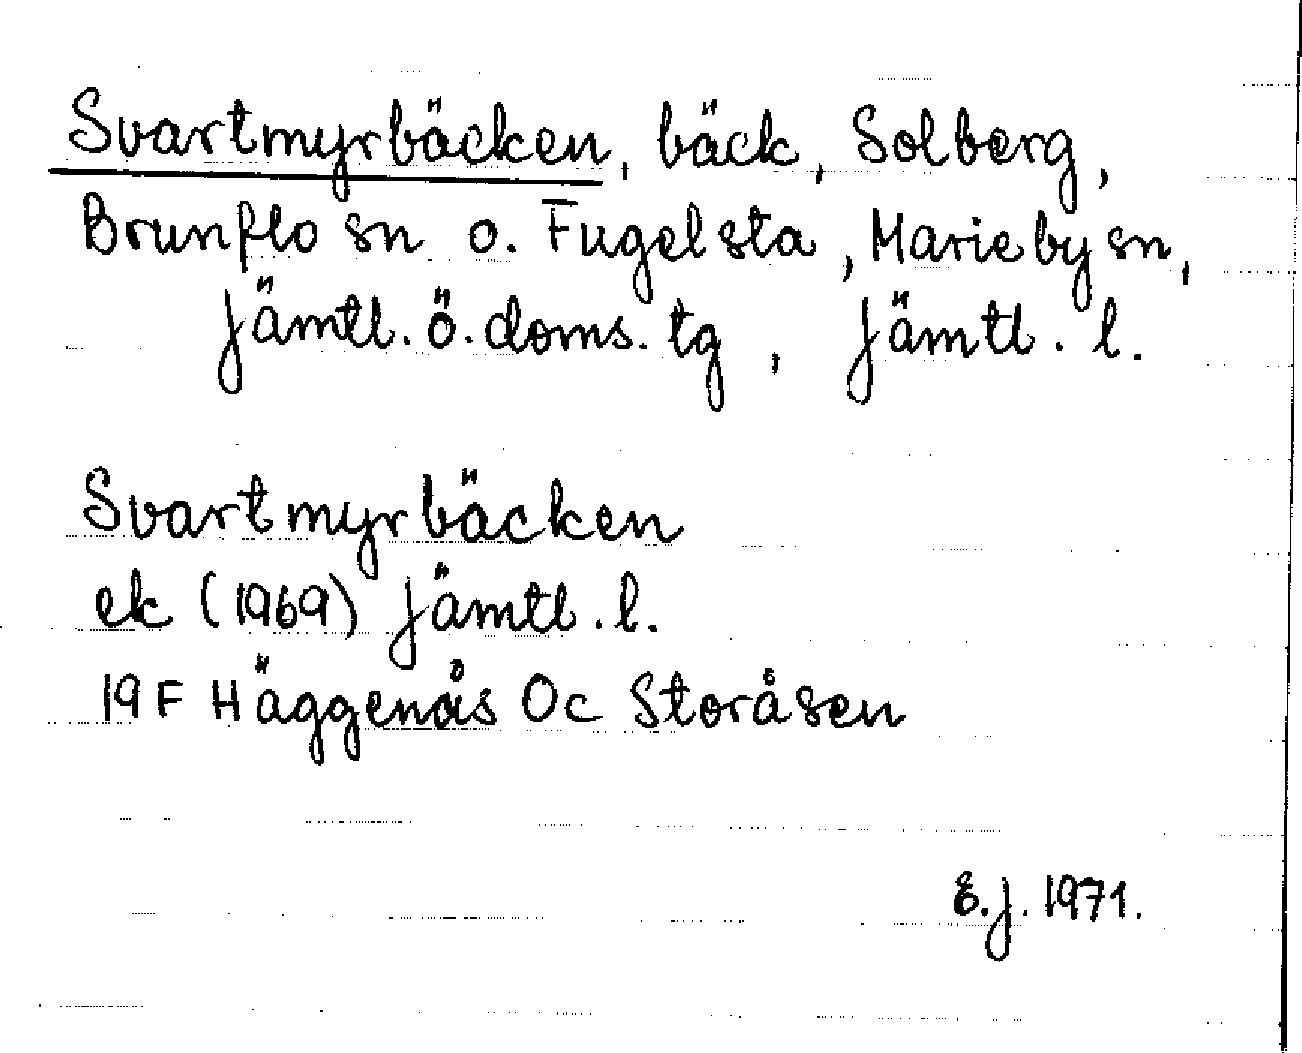 Svartmyrbäcken, bäck, Solberg,
Brunflo sn o. Fugelsta, Marieby sn,
Jämtl. ö. doms. tg, Jämtl. l.
Svartmyrbäcken
ek (1969) Jämtl. l.
19 F Häggenås Oc Storåsen
E.J. 1971.